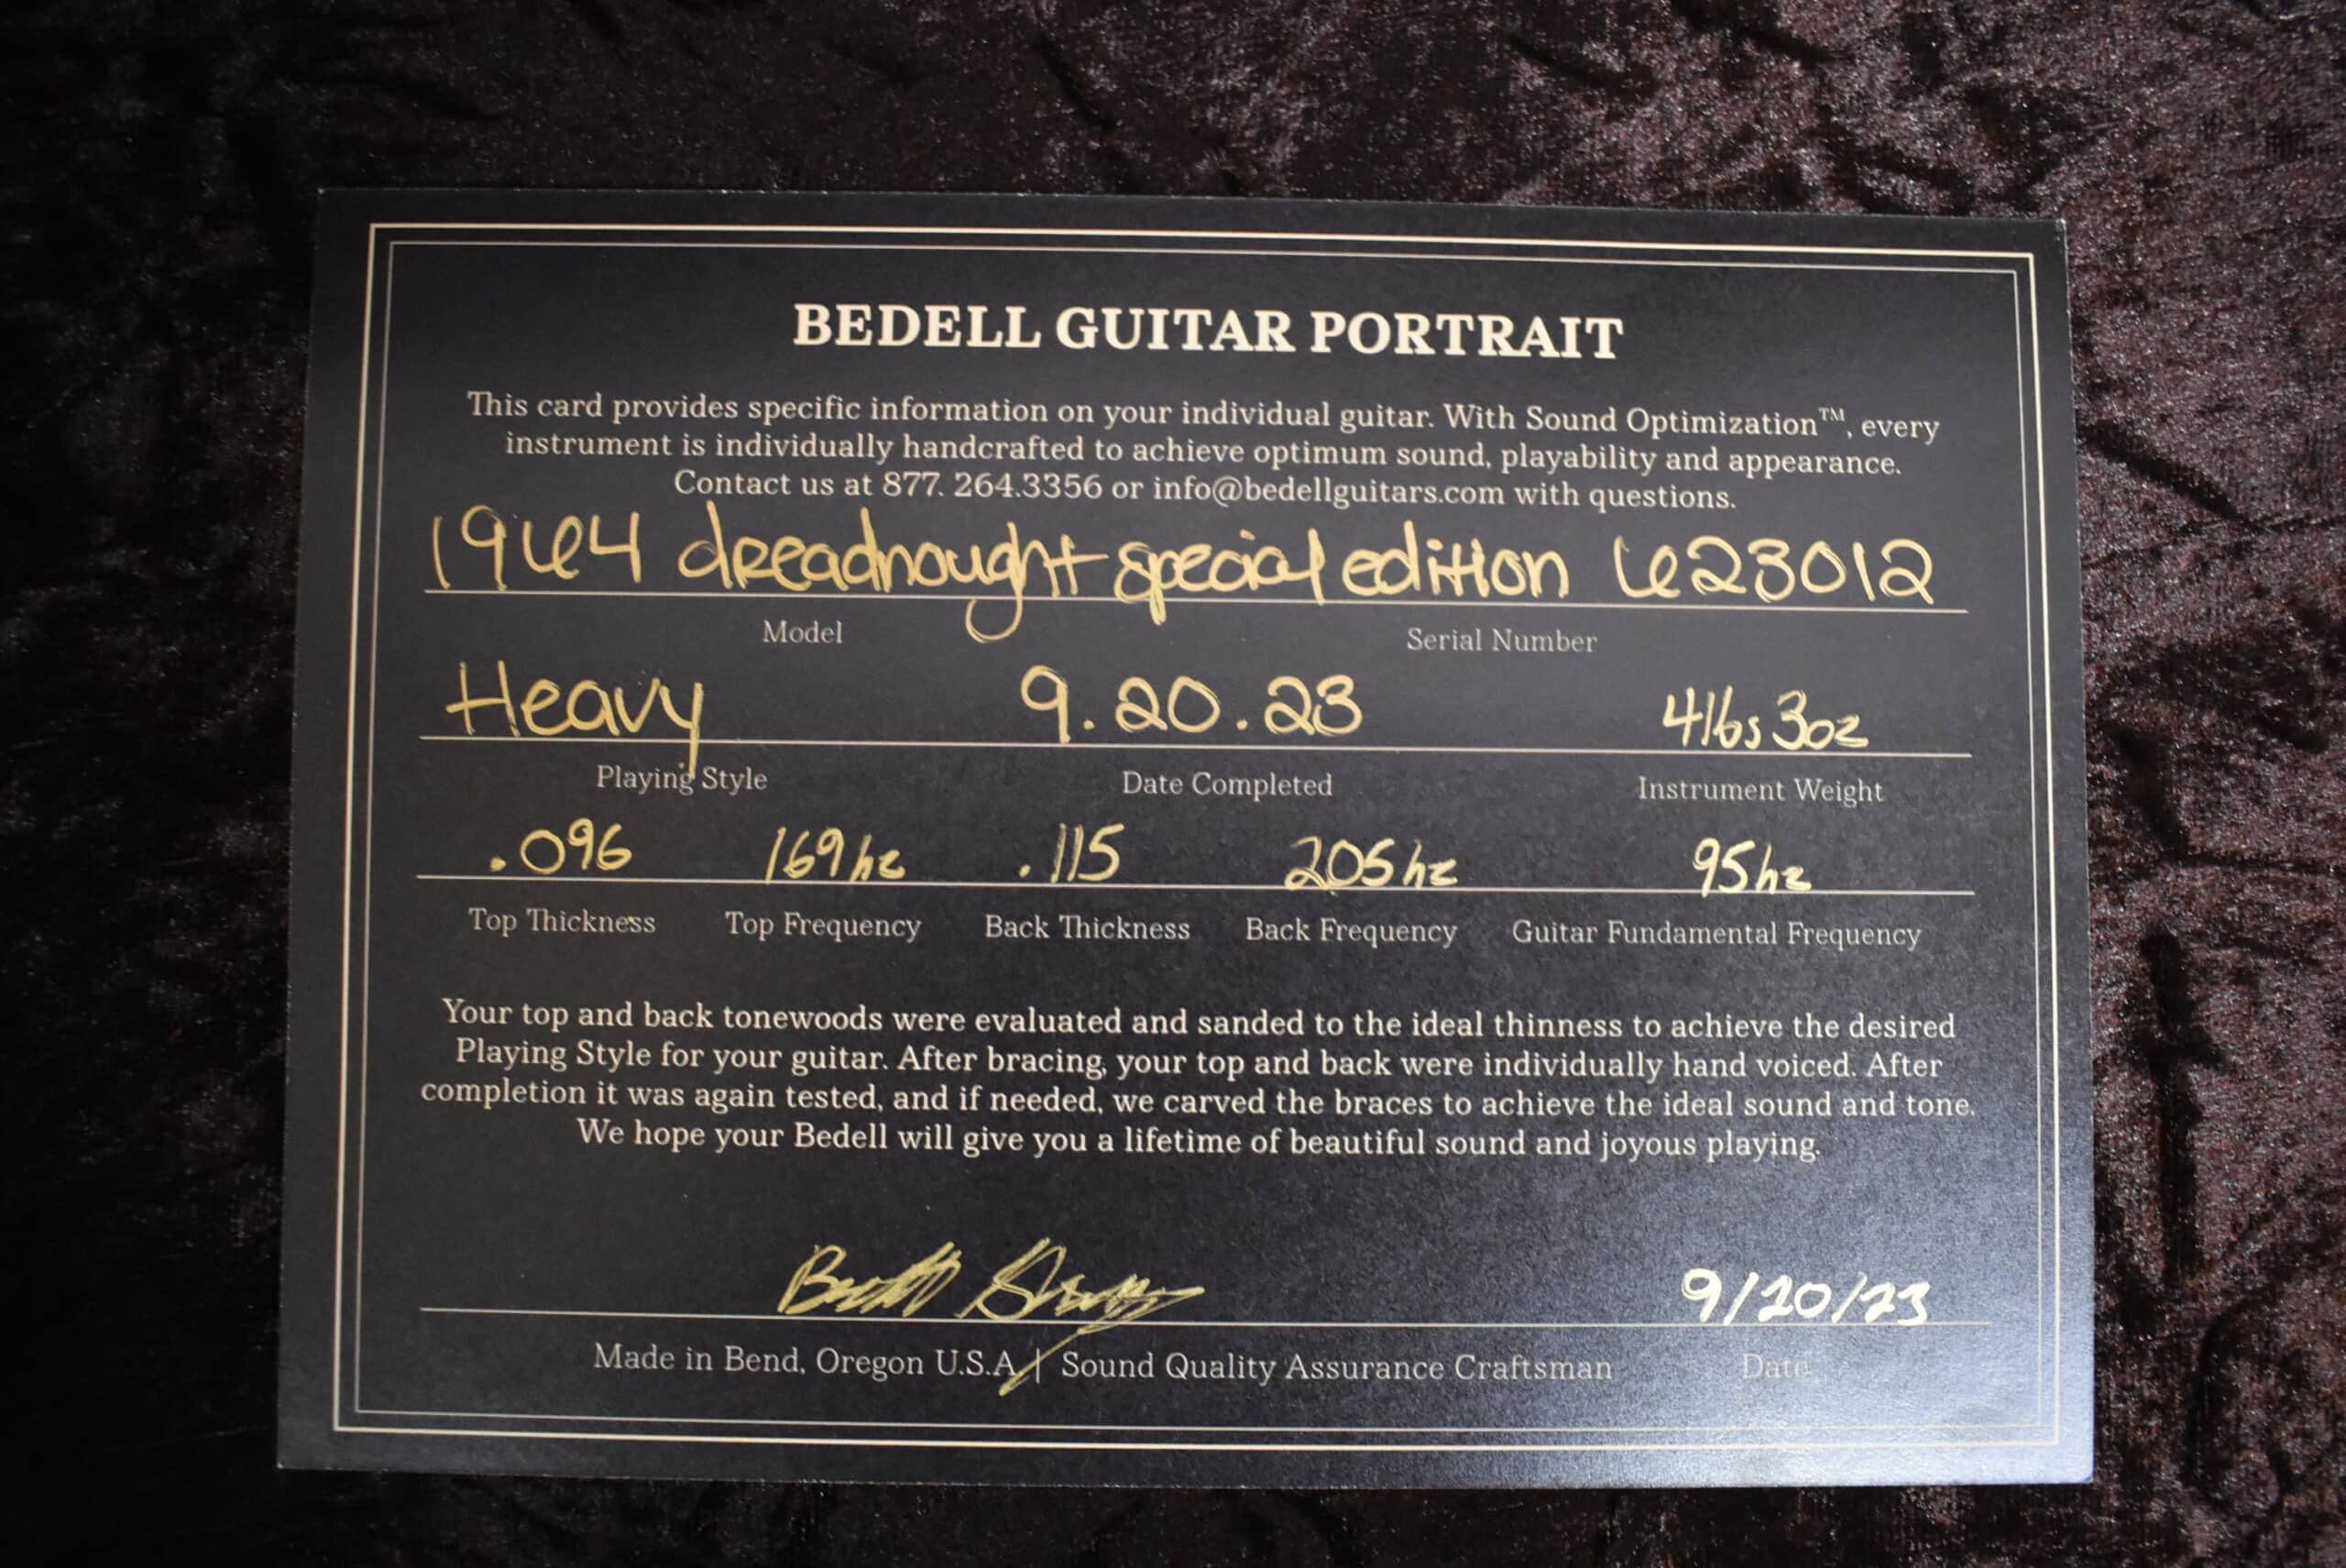 BEDELL GUITAR PORTRAIT
This card provides specific information on your individual guitar. With Sound Optimization™, every
instrument is individually handcrafted to achieve optimum sound, playability and appearance.
Contact us at 877. 264.3356 or info@bedellguitars.com with questions.
1964 dreadnought special edition 623012
Model Serial Number
Heavy 9.20.23 4lbs 3oz
Playing Style Date Completed Instrument Weight
.096 169hz .115 205hz 95hz
Top Thickness Top Frequency Back Thickness Back Frequency Guitar Fundamental Frequency
Your top and back tonewoods were evaluated and sanded to the ideal thinness to achieve the desired
Playing Style for your guitar. After bracing, your top and back were individually hand voiced. After
completion it was again tested, and if needed, we carved the braces to achieve the ideal sound and tone.
We hope your Bedell will give you a lifetime of beautiful sound and joyous playing.
9/20/23
Made in Bend, Oregon U.S.A | Sound Quality Assurance Craftsman Date